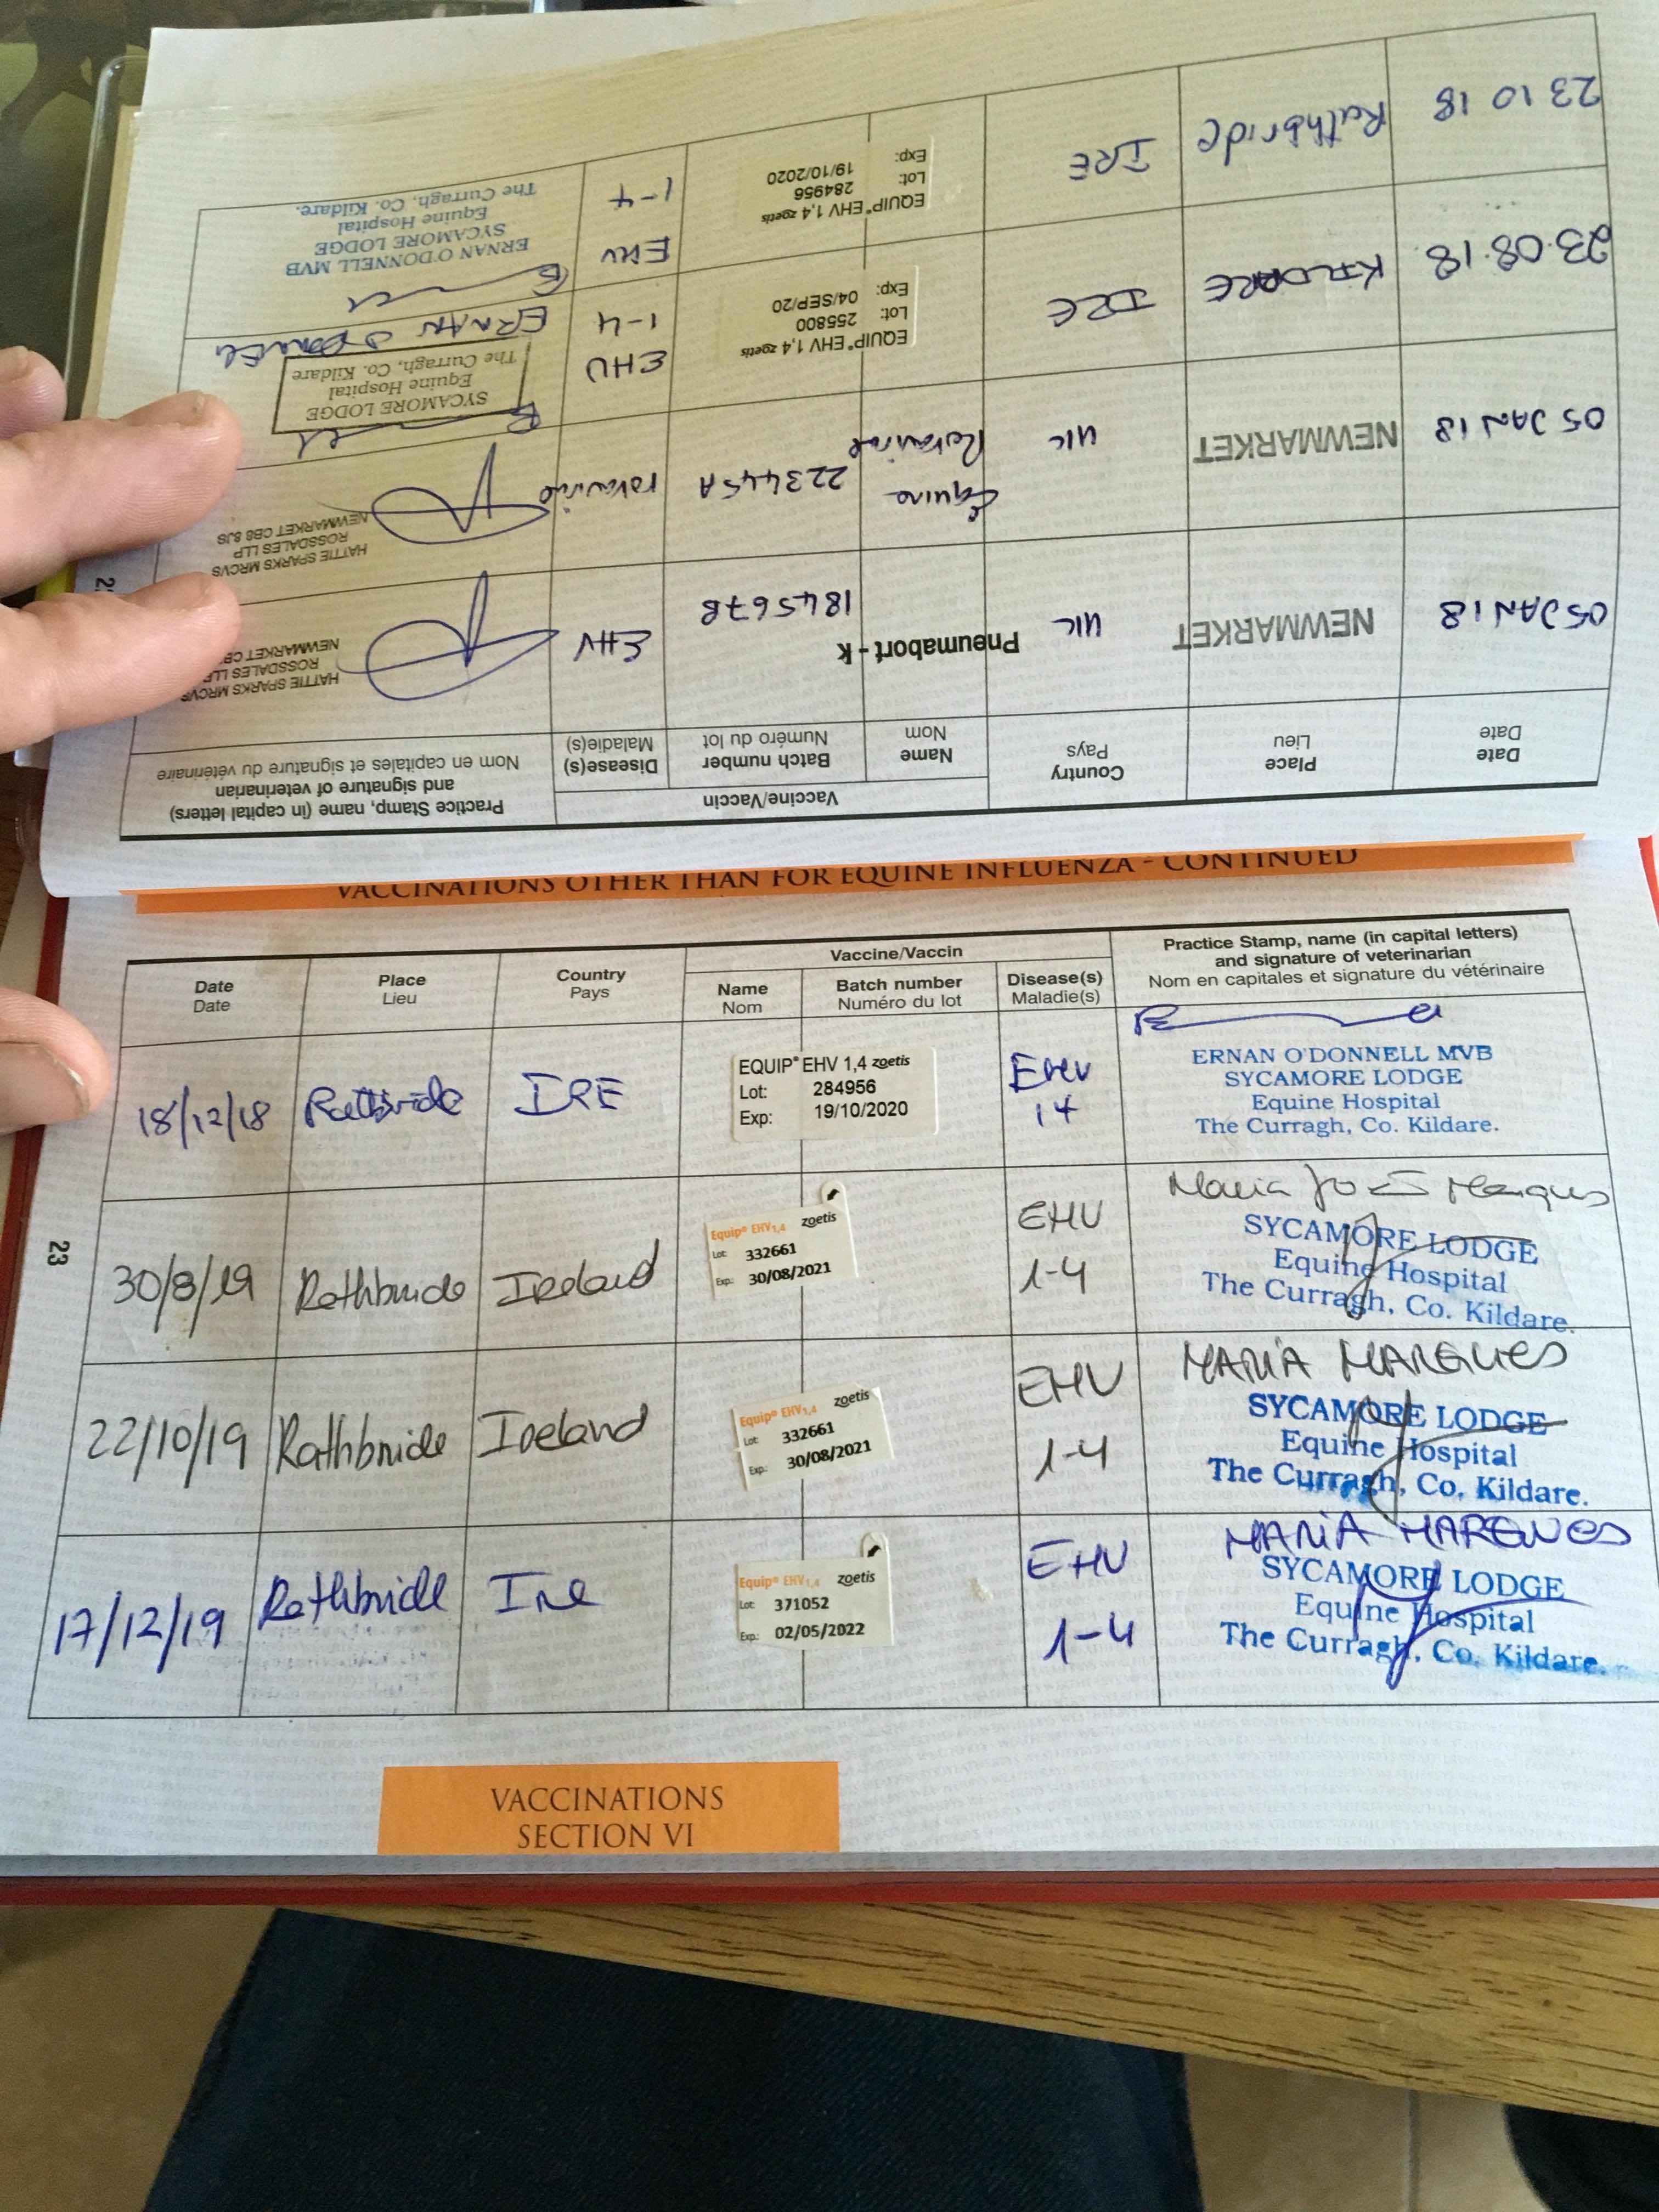 Practice Stamp, name (in capital letters)
and signature of veterinarian
Nom en capitales et signature du vétérinaire
Vaccine/Vaccin
Date
Date
Place
Lieu
Country
Pays
Name
Nom
Batch number
Numéro du lot
Disease(s)
Maladie(s)
05 JAN 18
NEWMARKET
UK
Pneumabort - K
184567B
EHV
HATTIE SPARKS MRCVS
ROSSDALES LL
NEWMARKET CB
05 JAN 18
NEWMARKET
UK
Equine
Rotavirus
223445A
rotavirus
HATTIE SPARKS MRCVS
ROSSDALES LLP
NEWMARKET CB8 8JS
23.08.18
KILDARE
IRE
EQUIP® EHV 1,4 zoetis
Lot: 255800
Exp: 04/SEP/20
EHV
1-4
SYCAMORE LODGE
Equine Hospital
The Curragh, Co. Kildare
ERNAN O DONNELL
23 10 18
Rathbride
IRE
EQUIP® EHV 1,4 zoetis
Lot: 284956
Exp: 19/10/2020
EHV
1-4
ERNAN O'DONNELL MVB
SYCAMORE LODGE
Equine Hospital
The Curragh, Co. Kildare.
VACCINATIONS OTHER THAN FOR EQUINE INFLUENZA - CONTINUED
Date
Date
Place
Lieu
Country
Pays
Vaccine/Vaccin
Name
Nom
Batch number
Numéro du lot
Disease(s)
Maladie(s)
Practice Stamp, name (in capital letters)
and signature of veterinarian
Nom en capitales et signature du vétérinaire
18/12/18
Rathbride
IRE
EQUIP® EHV 1,4 zoetis
Lot: 284956
Exp: 19/10/2020
EHV
14
ERNAN O'DONNELL MVB
SYCAMORE LODGE
Equine Hospital
The Curragh, Co. Kildare.
30/8/19
Rathbride
Ireland
Equip® EHV1,4 zoetis
Lot: 332661
Exp.: 30/08/2021
EHV
1-4
Maria João Marques
SYCAMORE LODGE
Equine Hospital
The Curragh, Co. Kildare.
22/10/19
Rathbride
Ireland
Equip® EHV1,4 zoetis
Lot: 332661
Exp.: 30/08/2021
EHV
1-4
MARIA MARQUES
SYCAMORE LODGE
Equine Hospital
The Curragh, Co. Kildare.
17/12/19
Rathbride
Ire
Equip® EHV1,4 zoetis
Lot: 371052
Exp.: 02/05/2022
EHV
1-4
MARIA MARQUES
SYCAMORE LODGE
Equine Hospital
The Curragh, Co. Kildare.
23
VACCINATIONS
SECTION VI